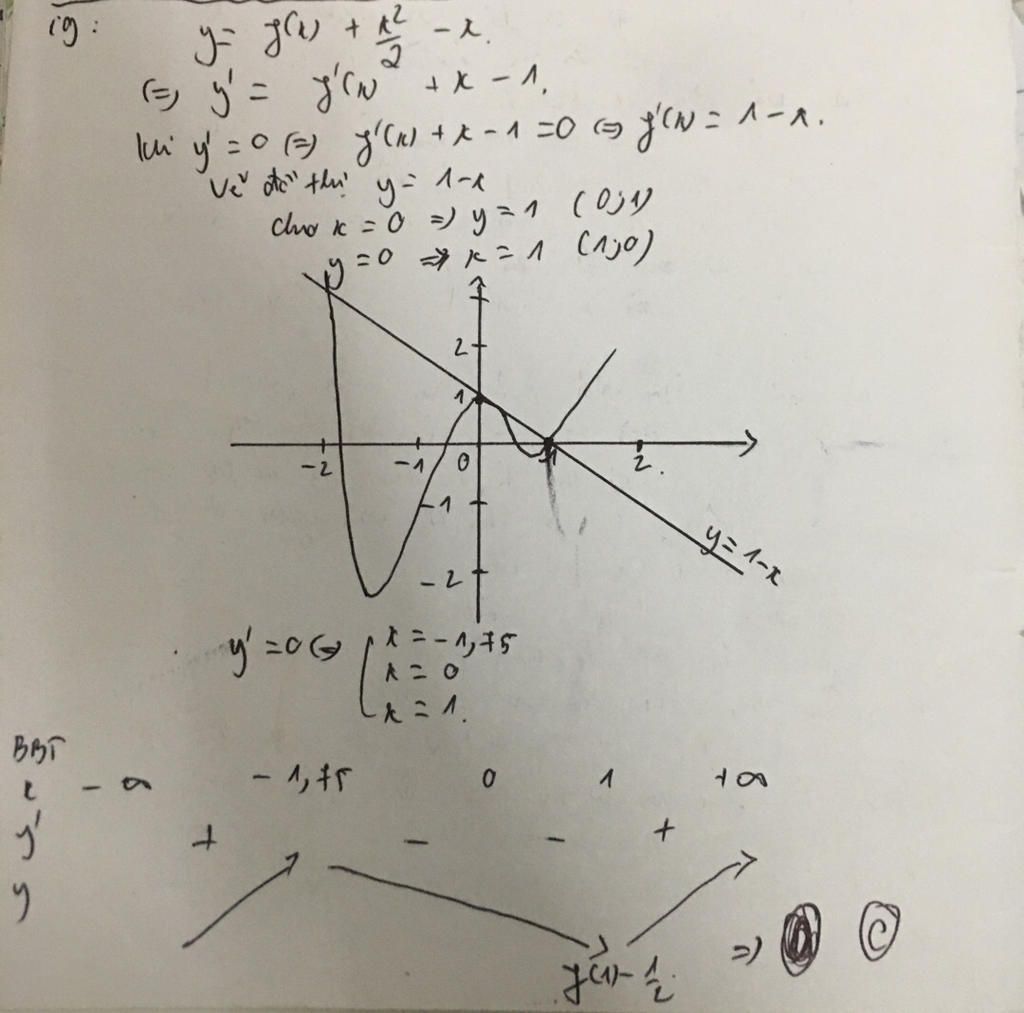 19:
y = f(x) + x²/2 - x.
(=) y' = f'(x) + x - 1.
khi y' = 0 (=) f'(x) + x - 1 = 0 (=) f'(x) = 1 - x.
Vẽ đồ thị y = 1-x
cho x = 0 => y = 1 (0;1)
y = 0 => x = 1 (1;0)
2
1
-2 -1 0 1 2.
-1
-2
y = 1-x
y' = 0 (=) [ x = -1,75
x = 0
x = 1.
BBT
x -∞ -1,75 0 1 +∞
y' + - - +
y
f(1) - 1/2.
=> C